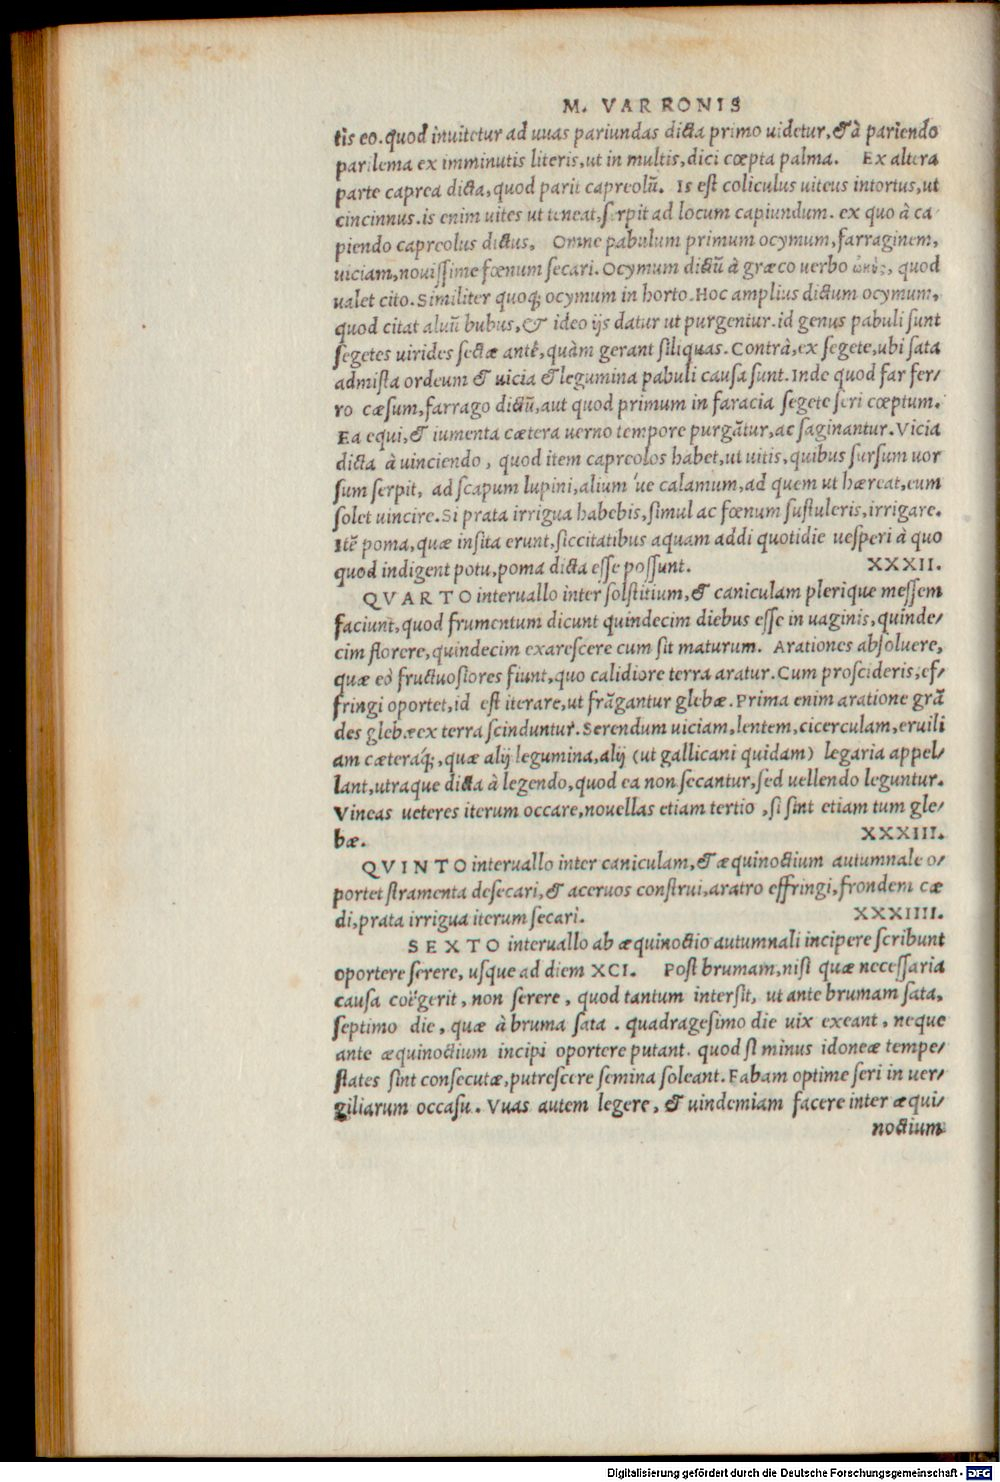 M. VARRONIS
tis eo. quod inuitetur ad uuas pariundas dicta primo uidetur, & à pariendo
parilema ex imminutis literis, ut in multis, dici cœpta palma. Ex altera
parte caprea dicta, quod parit capreolũ. Is est coliculus uiteus intortus, ut
cincinnus. is enim uites ut teneat, serpit ad locum capiundum. ex quo à ca
piendo capreolus dictus, Omne pabulum primum ocymum, farraginem,
uiciam, nouissime fœnum secari. Ocymum dictũ à græco uerbo quod
ualet cito. Similiter quoq; ocymum in horto. Hoc amplius dictum ocymum,
quod citat aluũ bubus, & ideo ijs datur ut purgentur. id genus pabuli sunt
segetes uirides sectæ antè, quàm gerant siliquas. Contrà, ex segete, ubi sata
admista ordeum & uicia & legumina pabuli causa sunt. Inde quod far fer/
ro cæsum, farrago dictũ, aut quod primum in faracia segete seri cœptum.
Ea equi, & iumenta cætera uerno tempore purgãtur, ac saginantur. Vicia
dicta à uinciendo, quod item capreolos habet, ut uitis, quibus sursum uor
sum serpit, ad scapum lupini, alium ue calamum, ad quem ut hæreat, eum
solet uincire. Si prata irrigua habebis, simul ac fœnum sustuleris, irrigare.
Itẽ poma, quæ insita erunt, siccitatibus aquam addi quotidie uesperi à quo
quod indigent potu, poma dicta esse possunt. XXXII.
QVARTO interuallo inter solstitium, & caniculam plerique messem
faciunt, quod frumentum dicunt quindecim diebus esse in uaginis, quinde/
cim florere, quindecim exarescere cum sit maturum. Arationes absoluere,
quæ eò fructuosiores fiunt, quo calidiore terra aratur. Cum proscideris, ef/
fringi oportet, id est iterare, ut frãgantur glebæ. Prima enim aratione grã
des glebæ ex terra scinduntur. Serendum uiciam, lentem, cicerculam, eruili
am cæteráq;, quæ alij legumina, alij (ut gallicani quidam) legaria appel/
lant, utraque dicta à legendo, quod ea non secantur, sed uellendo leguntur.
Vineas ueteres iterum occare, nouellas etiam tertio, si sint etiam tum gle/
bæ. XXXIII.
QVINTO interuallo inter caniculam, & æquinoctium autumnale o/
portet stramenta desecari, & aceruos construi, aratro effringi, frondem cæ
di, prata irrigua iterum secari. XXXIIII.
SEXTO interuallo ab æquinoctio autumnali incipere scribunt
oportere serere, usque ad diem XCI. Post brumam, nisi quæ necessaria
causa coëgerit, non serere, quod tantum intersit, ut ante brumam sata,
septimo die, quæ à bruma sata. quadragesimo die uix exeant, neque
ante æquinoctium incipi oportere putant. quod si minus idoneæ tempe/
states sint consecutæ, putrescere semina soleant. Fabam optime seri in uer/
giliarum occasu. Vuas autem legere, & uindemiam facere inter æqui/
noctium
Digitalisierung gefördert durch die Deutsche Forschungsgemeinschaft - DFG